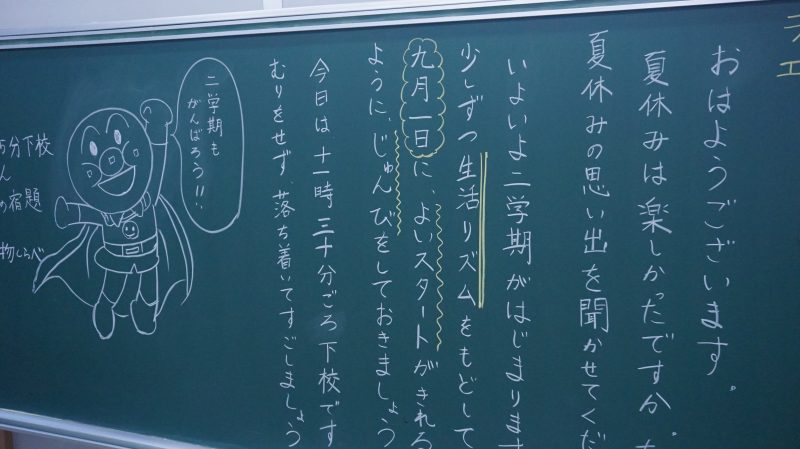 おはようございます。
夏休みは楽しかったですか。
夏休みの思い出を聞かせてくだ
いよいよ二学期がはじまります
少しずつ生活リズムをもどして
九月一日に、よいスタートがきれる
ように、じゅんびをしておきましょう
今日は十一時三十分ごろ下校です
むりをせず落ち着いてすごしましょう
二学期も
がんばろう!!
5分下校
ん
の宿題
物しらべ